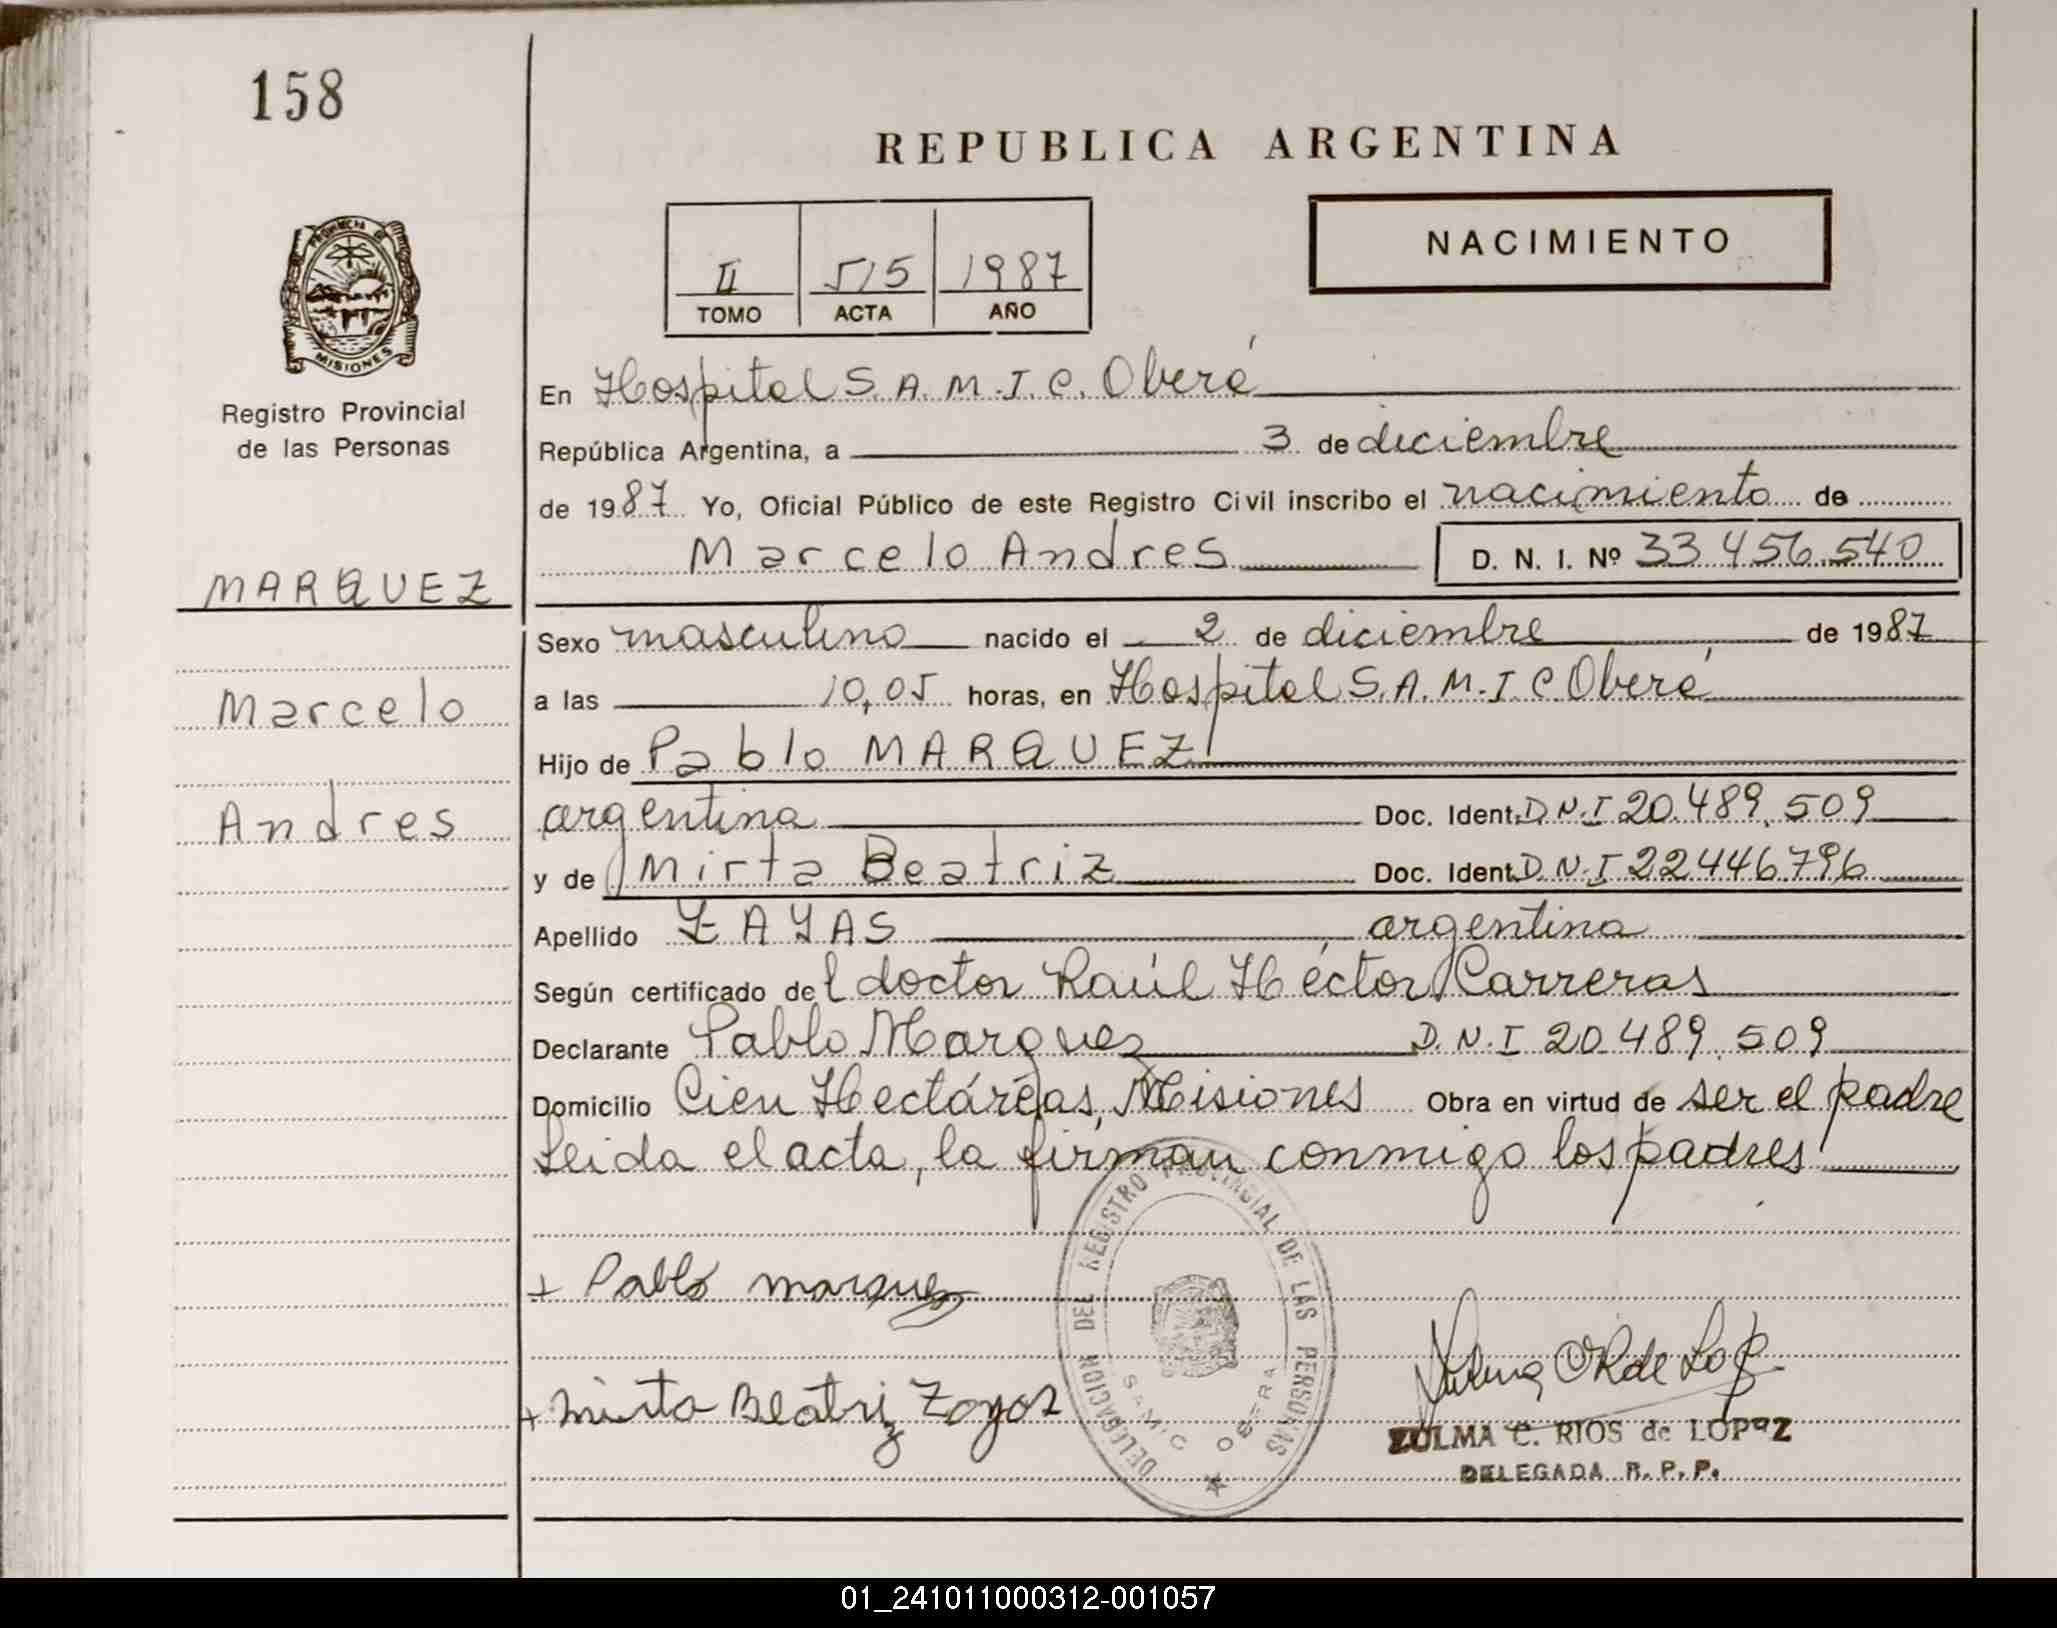 158
REPUBLICA ARGENTINA
PROVINCIA DE
MISIONES
II 515 1987
TOMO ACTA AÑO
NACIMIENTO
Registro Provincial
de las Personas
MARQUEZ
Marcelo
Andres
En Hospital S.A.M.I.C. Oberá
República Argentina, a 3 de diciembre
de 1987 Yo, Oficial Público de este Registro Civil inscribo el nacimiento de
Marcelo Andres D. N. I. Nº 33.456.540
Sexo masculino nacido el 2 de diciembre de 1987
a las 10,05 horas, en Hospital S.A.M.I.C Oberá
Hijo de Pablo MARQUEZ
argentina Doc. Ident. D.N.I 20.489.509
y de Mirta Beatriz Doc. Ident. D.N.I 22446796
Apellido ZAYAS argentina
Según certificado del doctor Raúl Héctor Carreras
Declarante Pablo Marquez D.N.I 20.489.509
Domicilio Cien Hectáreas, Misiones Obra en virtud de ser el padre
Leida el acta, la firman conmigo los padres
+ Pablo marquez
+ mirta Beatriz Zayas
DELEGACION DEL REGISTRO PROVINCIAL DE LAS PERSONAS
SAMIC OBERA
ZULMA C. RIOS de LOPEZ
DELEGADA R. P. P.
01_241011000312-001057